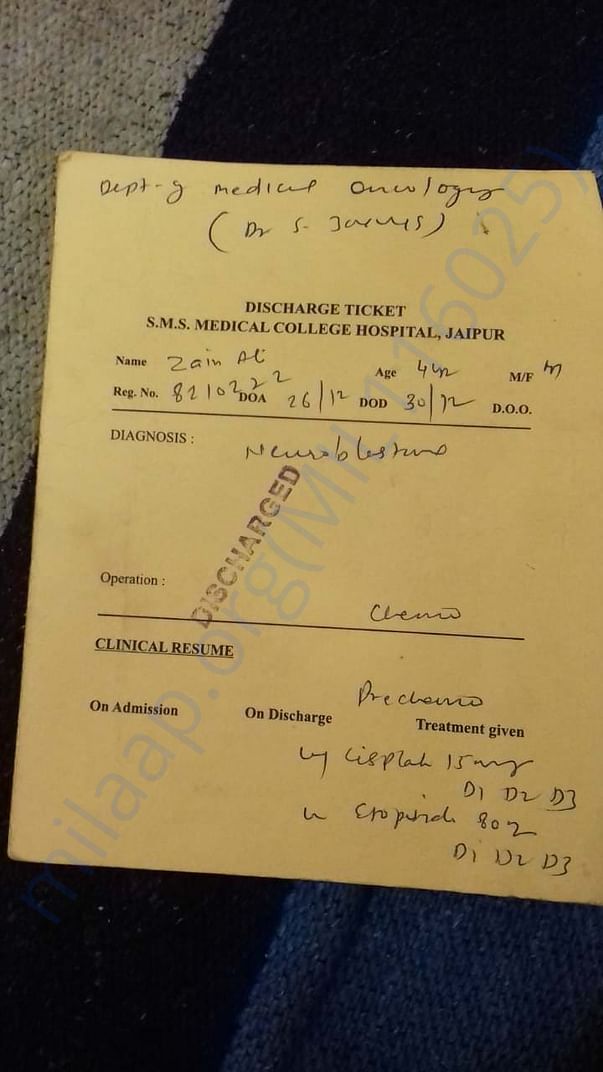 Dept. of medical oncology
(Dr S.
DISCHARGE TICKET
S.M.S. MEDICAL COLLEGE HOSPITAL, JAIPUR
Name Zain Ali Age 4 yr M/F M
Reg. No. 8210222 DOA 26/12 DOD 30/12 D.O.O.
DIAGNOSIS : Neuroblastoma
DISCHARGED
Operation :
Chemo
CLINICAL RESUME
Prechemo
On Admission On Discharge Treatment given
Cisplatin 15mg
D1 D2 D3
Etoposide 80
D1 D2 D3
milaap.org(MIL116025)